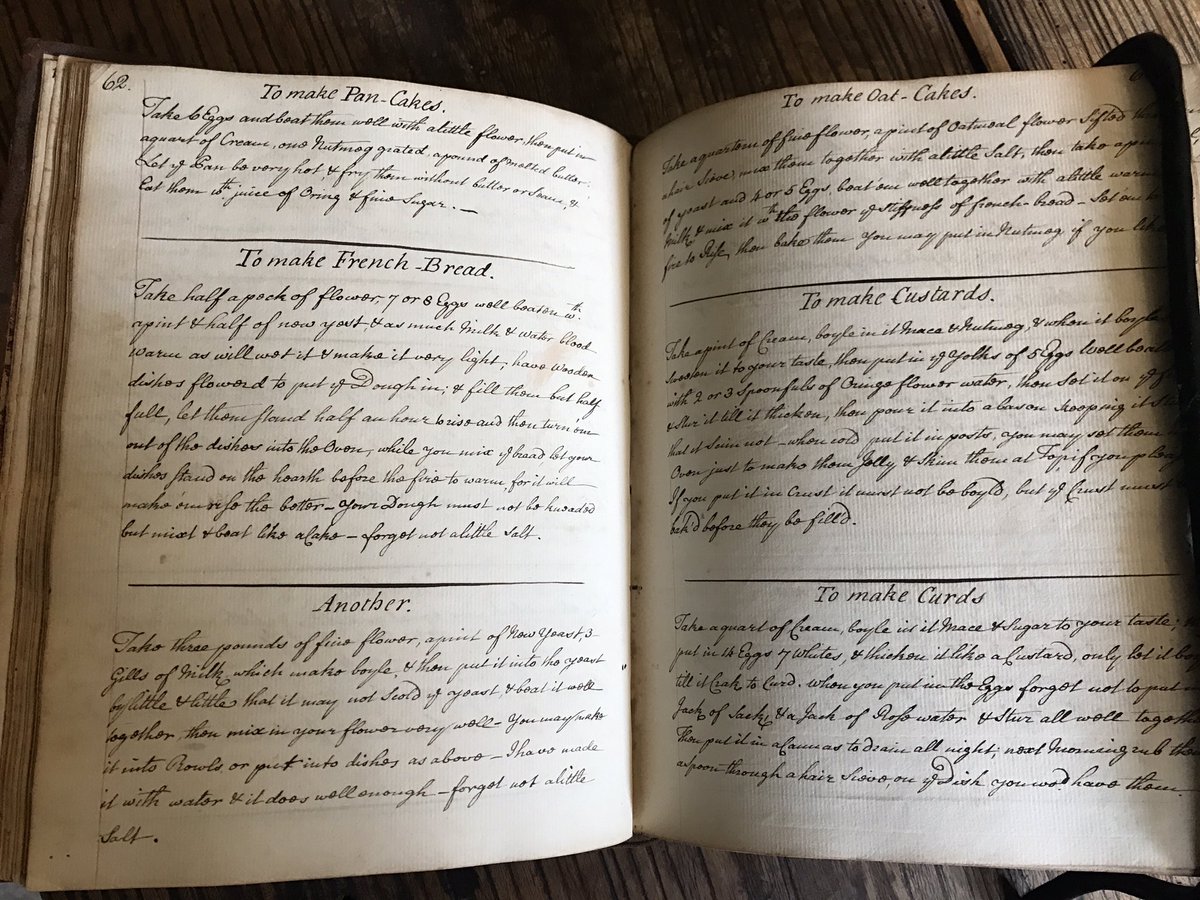 62.
To make Pan-Cakes.
Take 6 Eggs and beat them well with a little flower, then put in
a quart of Cream, one Nutmeg grated, a pound of melted butter:
Let yͤ Pan be very hot & fry them without butter or Sauce, &
Eat them wᵗʰ juice of Oring & fine Sugar. —
To make French-Bread.
Take half a peck of flower, 7 or 8 Eggs well beaten wᵗʰ
a pint & half of new yest, & as much Milk & water blood
warm as will wet it & make it very light, have wooden
dishes flowerd to put yͤ Dough in; & fill them but half
full, let them stand half an hour to rise and then turn em
out of the dishes into the Oven, while you mix yͤ bread, let your
dishes stand on the hearth before the fire to warm for it will
make 'em rise the better — Your Dough must not be kneaded
but mixt & beat like a Cake — forget not a little Salt.
Another.
Take three pounds of fine flower, a pint of New Yeast, 3
Gills of Milk, which make boyle, & then put it into the yeast
by little & little that it may not Scold yͤ yeast, & beat it well
together, then mix in your flower very well — You may make
it into Rowls, or put into dishes as above — I have made
it with water & it does well enough — forget not a little
Salt.
To make Oat-Cakes.
Take a quartern of fine flower, a pint of Oatmeal flower Sifted
a hair Sieve, mix them together with a little Salt, then take a
of yeast and 4 or 5 Eggs, beat 'em well together with a little warm
Milk, & mix it wᵗʰ the flower yͤ Stiffness of french-bread — Set 'em
fire to Rise, then bake them You may put in Nutmeg if you like
To make Custards.
Take a pint of Cream, boyle in it Mace & Nutmeg, & when it boyle
Sweeten it to your taste, then put in yͤ Yolks of 5 Eggs Well beat
with 2 or 3 Spoonfuls of Orange flower water, then Set it on yͤ
& Stur it till it thicken, then pour it into a bason keeping it
that it Scim not — when cold, put it in posts, you may set them
Oven just to make them Jelly & Skim them at Top, if you pleas
If you put it in Crust it must not be boyl'd, but yͤ Crust must
bak'd before they be fill'd.
To make Curds
Take a quart of Cream, boyle in it Mace & Sugar to your taste;
put in 14 Eggs 7 Whites, & thicken it like a Custard, only let it
till it Crak to Curd. when you put in the Eggs forget not to put
Jack of Sack, & a Jack of Rose water & Stur all well together
Then put it in a Canvas to drain all night; next Morning rub
a spoon through a hair Sieve, on yͤ Dish you wᵈ have them.